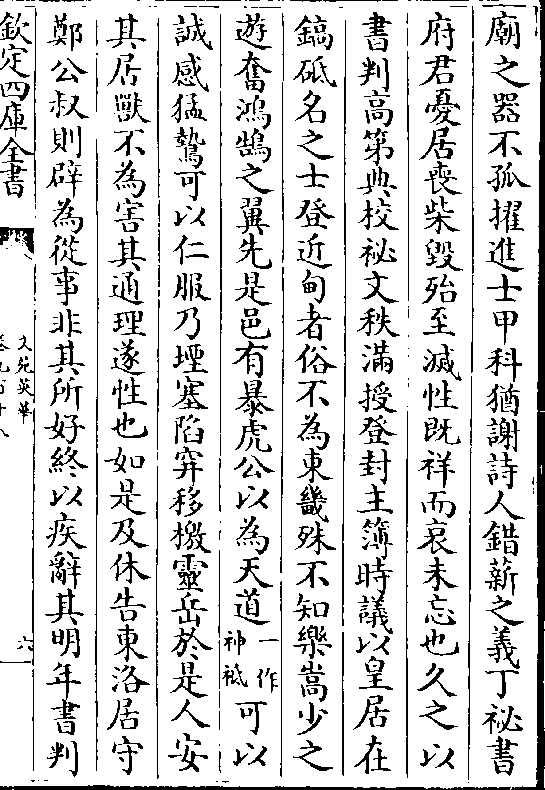 廟之器不孤擢進士甲科猶謝詩人錯薪之義丁祕書
府君憂居喪柴毀殆至滅性既祥而哀未忘也久之以
書判高第典校祕文秩滿授登封主簿時議以皇居在
鎬砥名之士登近甸者俗不為東畿殊不知樂嵩少之
遊奮鴻鵠之翼先是邑有暴虎公以為天道一作神祗可以
誠感猛鷙可以仁服乃堙塞陷穽移檄靈岳於是人安
其居獸不為害其通理遂性也如是及休告東洛居守
鄭公叔則辟為從事非其所好終以疾辭其明年書判
欽定四庫全書
文苑英華
六